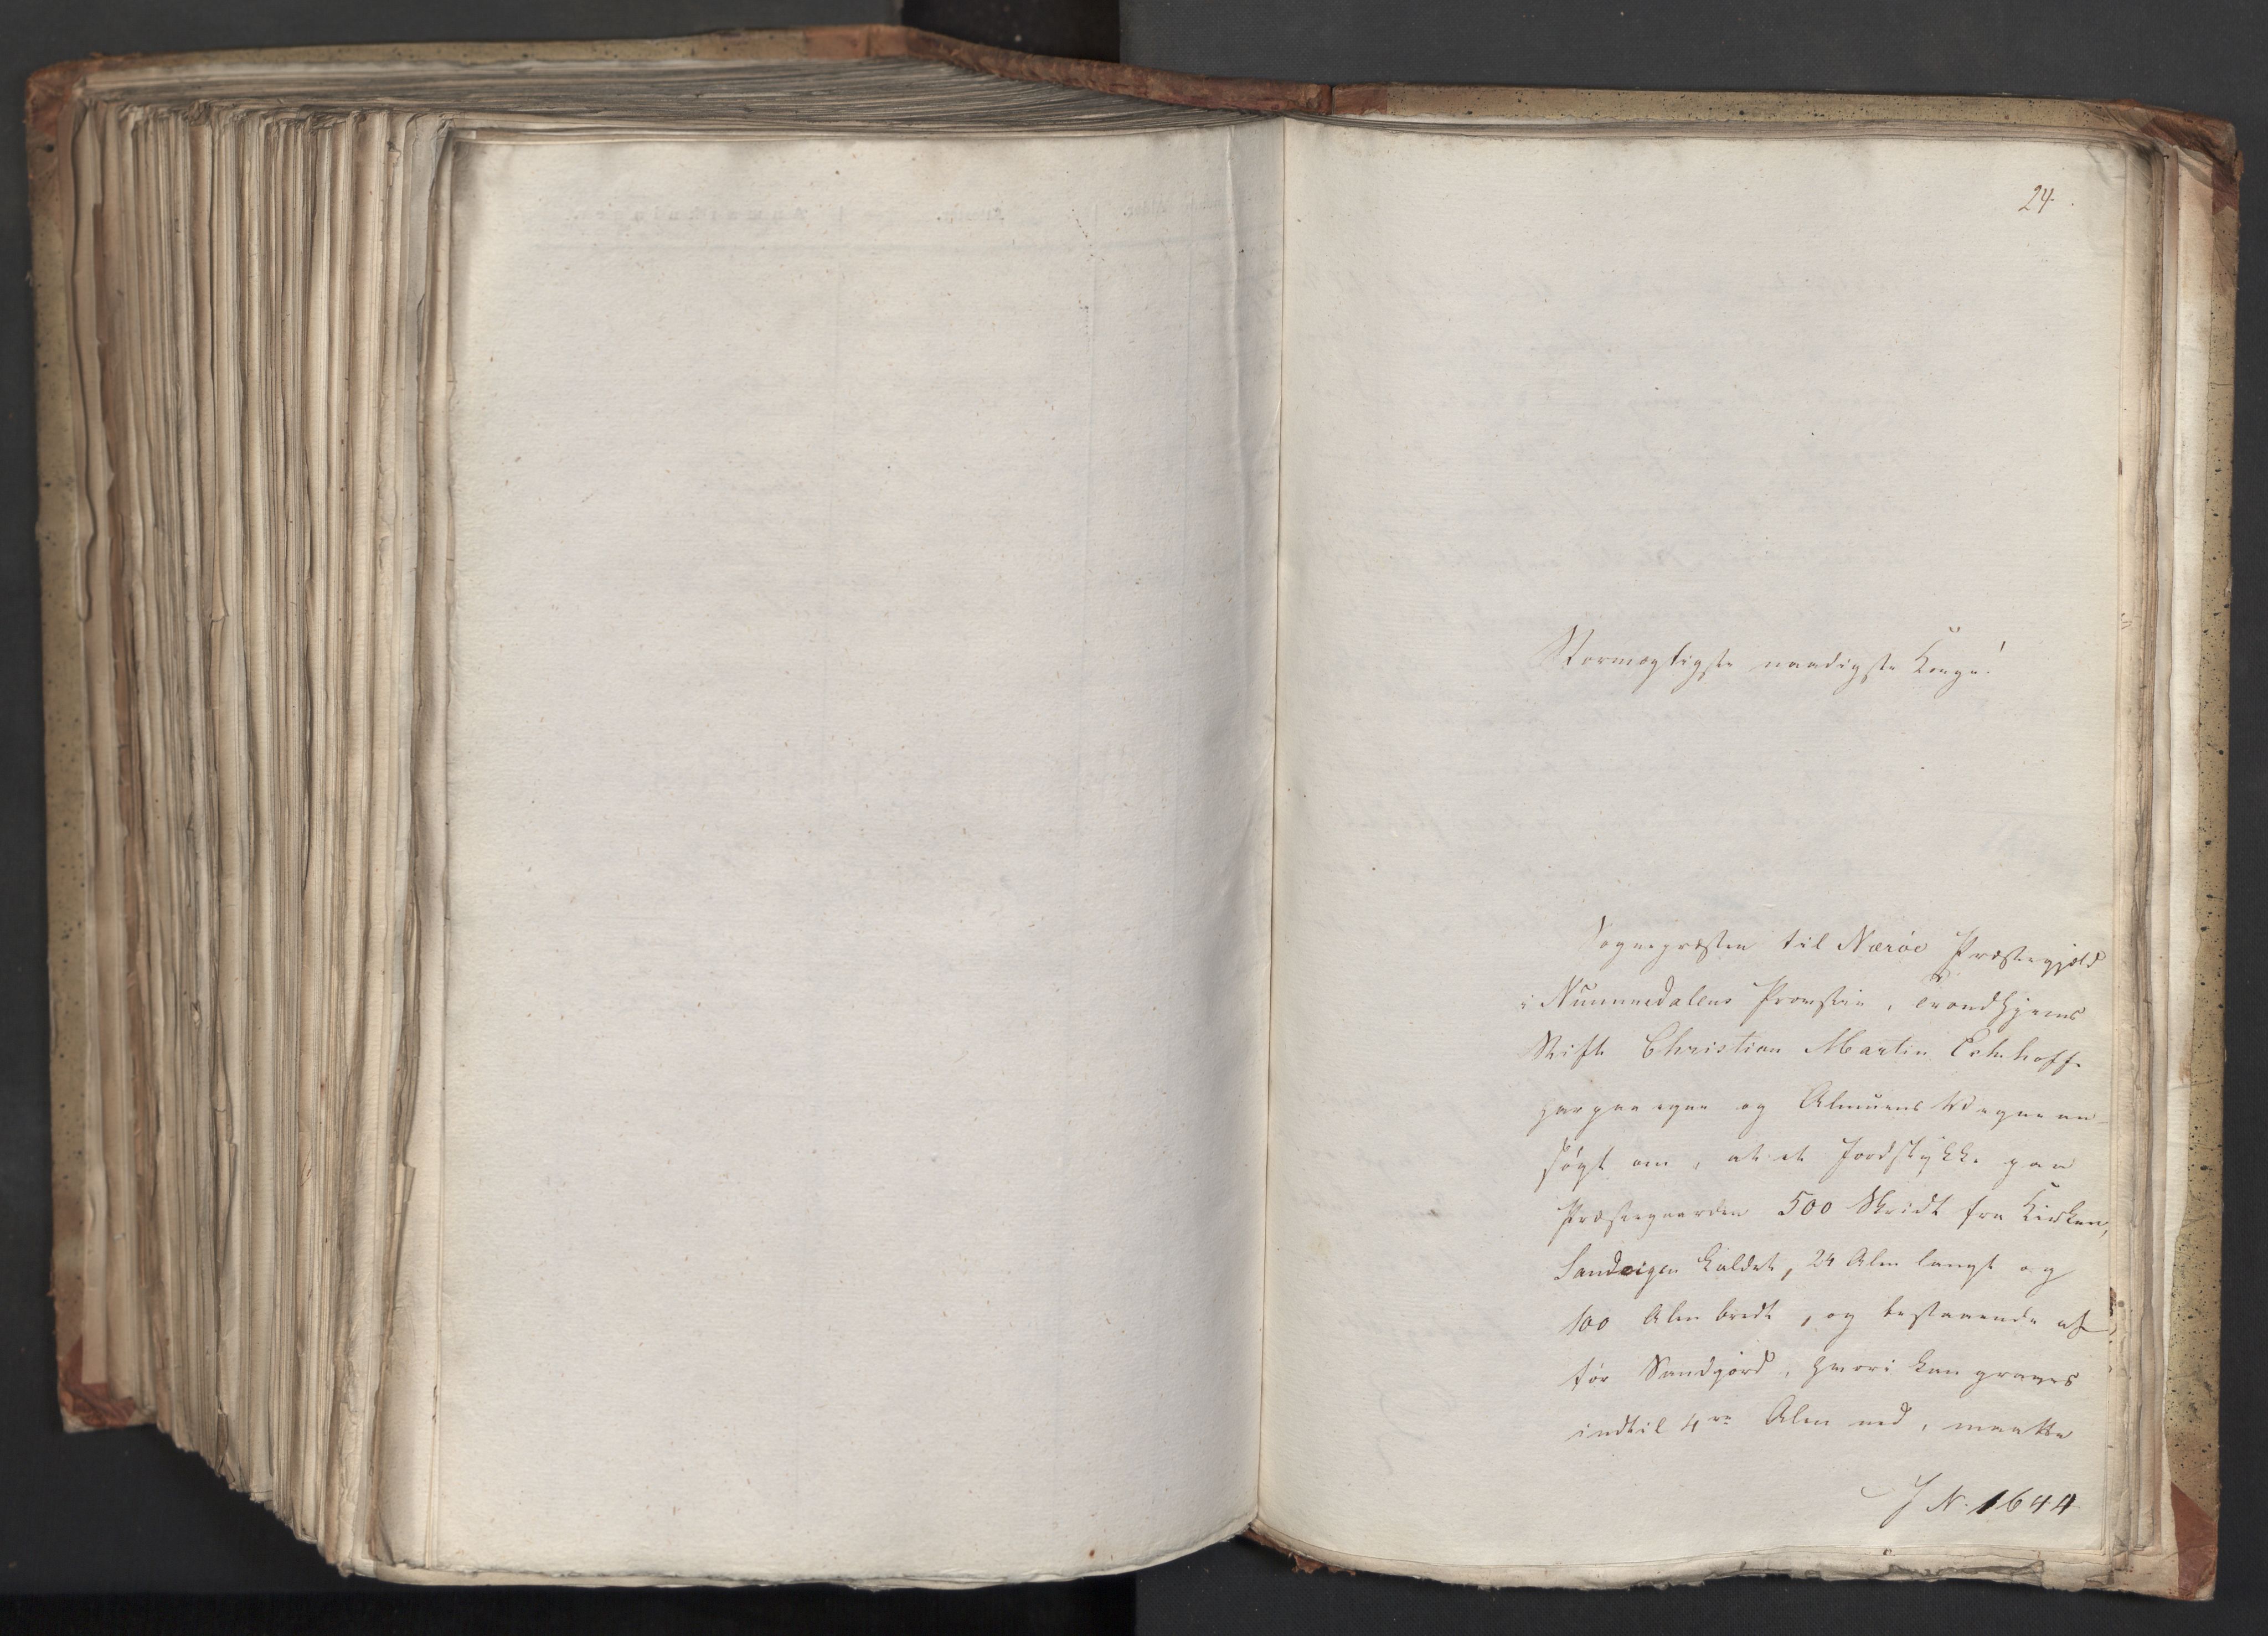 24.
Stormægtigste naadigste Konge!
Sognepræsten til Nærøe Præstegjeld
i Nummedalens Provstie, Trondhjems
Stift Christian Martin Eckhoff
har paa egne og Almuens Vegne an-
søgt om, at et Jordstykke paa
Præstegaarden 500 Skridt fra Kirken,
Sandvigen kaldet, 24 Alen langt og
100 Alen bredt, og bestaaende af
tør Sandjord, hvori kan graves
indtil 4re Alen ned, maatte
J N. 1644